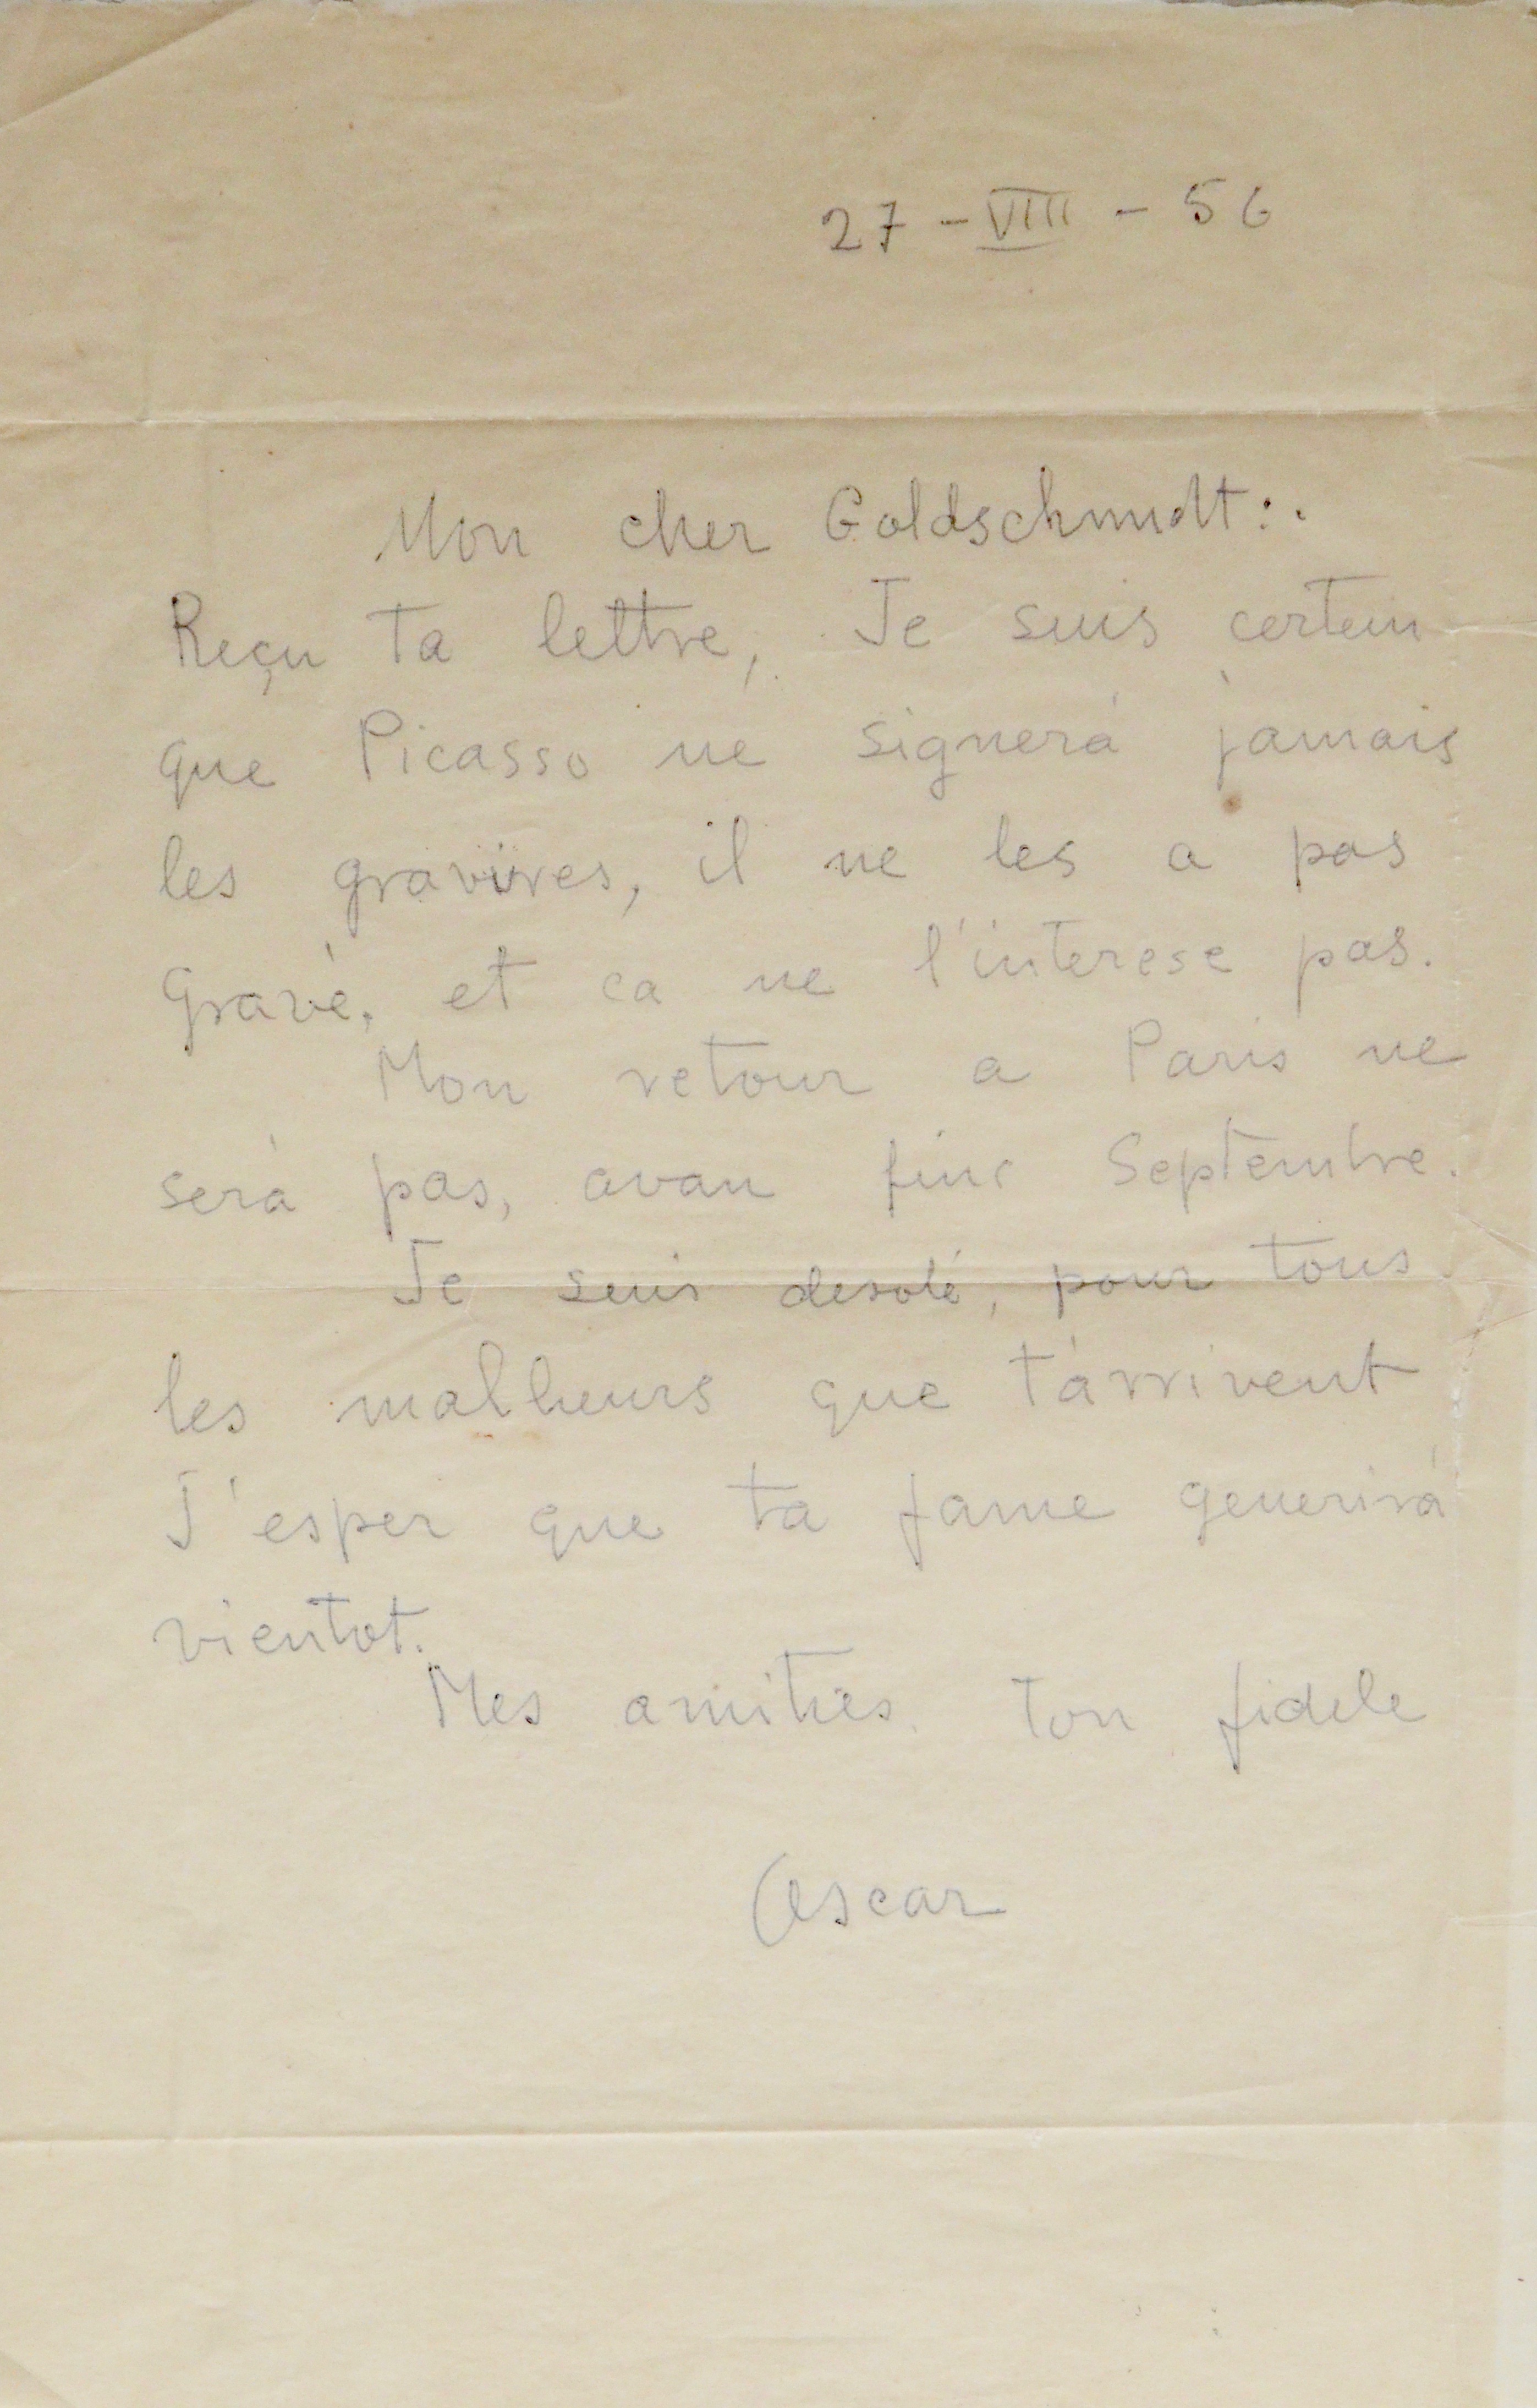 27 - VIII - 56
Mon cher Goldschmidt:.
Reçu ta lettre, Je suis certein
que Picasso ne signerá jamais
les gravures, il ne les a pas
Gravé, et ca ne l'interese pas.
Mon retour a Paris ne
será pas, avan fine Septembre.
Je suis desolé, pour tous
les malheurs que t'arrivent
J'esper que ta fame generirá
vientot.
Mes amities ton fidele
Oscar